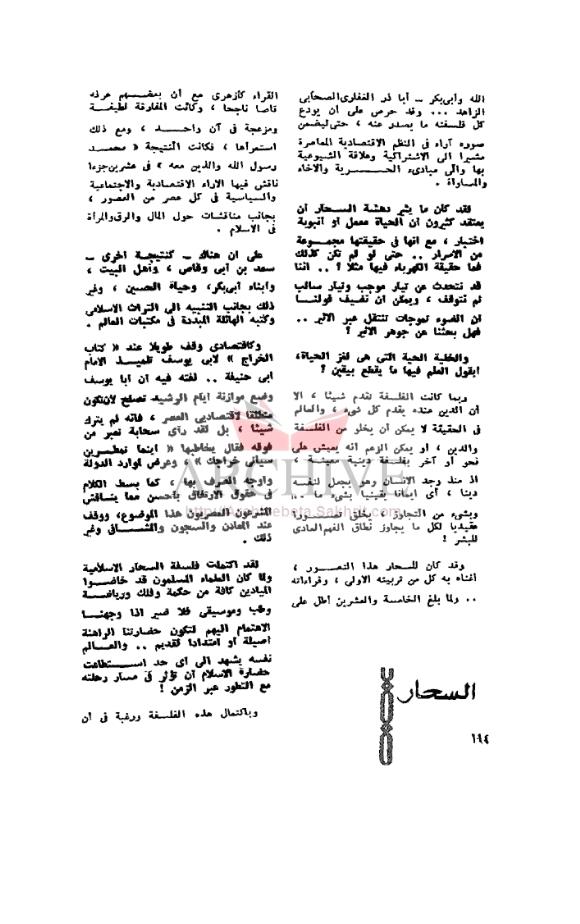 الله وأبي بكر ــ أبا ذر الغفارى الصحابى
الزاهد ... وقد حرص على أن يودع
كل فلسفته ما يصدر عنه ، حتى ليضمن
صوره آراء فى النظم الاقتصادية المعاصرة
مشيرا الى الاشتراكية وعلاقة الشيوعية
بها والى مبادىء الحـــــرية والاخاء
والمساواة .
لقد كان ما يثير دهشة السحار أن
يعتقد كثيرون أن الحياة معمل أو أنبوبة
اختبار ، مع أنها فى حقيقتها مجموعة
من الأسرار .. حتى لو لم تكن كذلك
فما حقيقة الكهرباء فيها مثلا ؟ .. اننا
قد نتحدث عن تيار موجب وتيار سالب
ثم نتوقف ، ويمكن أن نضيف قولنا
أن الضوء تموجات تنتقل عبر الأثير ..
فهل بحثنا عن جوهر الأثير ؟
والخلية الحية التى هى لغز الحياة،
أيقول العلم فيها ما يقطع بيقين ؟
وبما كانت الفلسفة تقدم شيئا ، الا
أن الدين عنده يقدم كل شىء ، والعالم
فى الحقيقة لا يمكن أن يخلو من الفلسفة
والدين ، أو يمكن الزعم أنه يعيش على
نحو أو آخر بفلسفة دينية معينة ،
اذ منذ وجد الانسان وهو يجعل لنفسه
دينا ، أى ايمانا يقينيا بشىء ما ..
وبشىء من التجاوز ، يخلق تصـــورا
عقيديا لكل ما يجاوز نطاق الفهم العادى
للبشر !
وقد كان للسحار هذا التصـــور ،
أعانه به كل من تربيته الأولى ، وقراءاته
.. ولما بلغ الخامسة والعشرين أطل على
القراء كأزهرى مع أن بعضـــهم عرفه
قاصا ناجحا ، وكانت المفارقة لطيفـــة
ومزعجة فى آن واحـــد ، ومع ذلك
استمرأها ، فكانت النتيجة « محمـــد
رسول الله والذين معه » فى عشرين جزءا
ناقش فيها الآراء الاقتصادية والاجتماعية
والسياسية فى كل عصر من العصور ،
بجانب مناقشات حول المال والرق والمرأة
فى الاسلام .
على أن هناك ــ كنتيجـة أخرى ــ
سعد بن أبى وقاص ، وأهل البيت ،
وأبناء أبى بكر، وحياة الحسين ، وغير
ذلك بجانب التنبيه الى التراث الاسلامى
وكتبه الهائلة المبددة فى مكتبات العالم .
وكاقتصادى وقف طويلا عند « كتاب
الخراج » لأبى يوسف تلميـــذ الامام
أبى حنيفة .. لفته فيه أن أبا يوسف
وضع موازنة أيام الرشيد تصلح لأن تكون
منطلقا لاقتصاديى العصر ، فانه لم يترك
شيئا ، بل لقد رأى سحابة تمر من
فوقه فقال يخاطبها « أينما تمطـرين
سيأتى خراجك » ، وعرض لموارد الدولة
وأوجه الصرف بها ، كما بسط الكلام
فى حقوق الارتفاق بأحسن مما يناقش
المشرعون العصريون هذا الموضوع، ووقف
عند المعادن والسجون والشـــافى وغير
ذلك .
لقد اكتملت فلسفة السحار الاسلامية
ولما كان العلماء المسلمون قد خاضـــوا
الميادين كافة من حكمة وفلك ورياضــة
وطب وموسيقى فلا ضير اذا وجهنـــا
الاهتمام اليهم لتكون حضارتنا الراهنة
أصيلة أو امتدادا لقديم .. والعـــالم
نفسه يشهد الى أى حد اســـتطاعت
حضارة الاسلام أن تؤثر فى مسار رحلته
مع التطور عبر الزمن !
وباكتمال هذه الفلسفة ورغبة فى أن
السحار
١٩٤
ARCHIVE
http://Archivebeta.Sakhrit.com